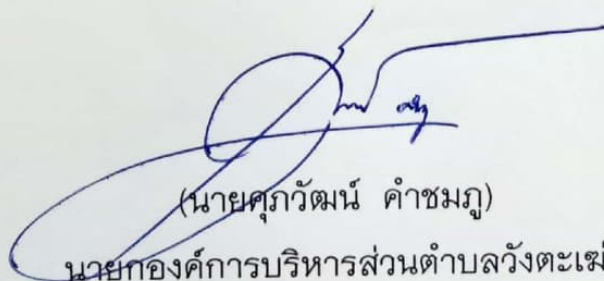 (นายศุภวัฒน์ คำชมภู)
นายกองค์การบริหารส่วนตำบลวังตะเฆ่